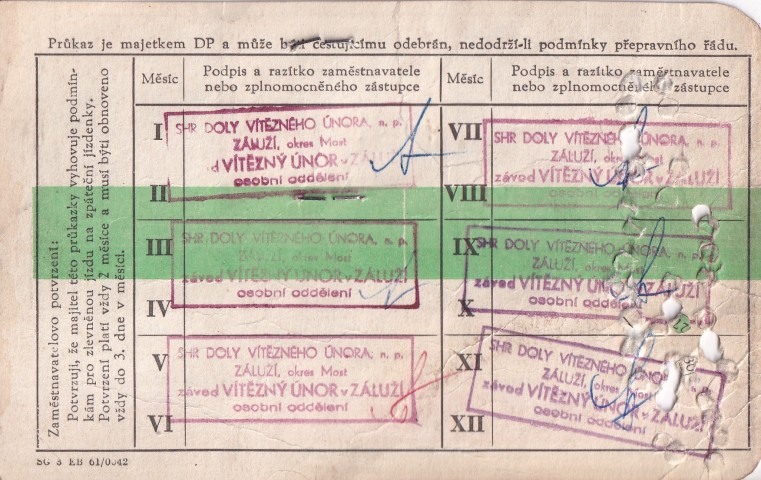 Průkaz je majetkem DP a může býti cestujícímu odebrán, nedodrží-li podmínky přepravního řádu.
Zaměstnavatelovo potvrzení:
Potvrzuji, že majitel této průkazky vyhovuje podmín-
kám pro zlevněnou jízdu na zpáteční jízdenky.
Potvrzení platí vždy 2 měsíce a musí býti obnoveno
vždy do 3. dne v měsíci.
Měsíc
Podpis a razítko zaměstnavatele
nebo zplnomocněného zástupce
I
SHR DOLY VÍTĚZNÉHO ÚNORA, n. p.
ZÁLUŽÍ, okres Most
d VÍTĚZNÝ ÚNOR v ZÁLUŽÍ
osobní oddělení
II
III
SHR DOLY VÍTĚZNÉHO ÚNORA, n. p.
ZÁLUŽÍ, okres Most
závod VÍTĚZNÝ ÚNOR v ZÁLUŽÍ
osobní oddělení
IV
V
SHR DOLY VÍTĚZNÉHO ÚNORA, n. p.
ZÁLUŽÍ, okres Most
závod VÍTĚZNÝ ÚNOR v ZÁLUŽÍ
osobní oddělení
VI
Měsíc
Podpis a razítko zaměstnavatele
nebo zplnomocněného zástupce
VII
SHR DOLY VÍTĚZNÉHO ÚNORA, n. p.
ZÁLUŽÍ, okres Most
závod VÍTĚZNÝ ÚNOR v ZÁLUŽÍ
VIII
IX
SHR DOLY VÍTĚZNÉHO ÚNORA, n. p.
ZÁLUŽÍ, okres Most
závod VÍTĚZNÝ ÚNOR v ZÁLUŽÍ
osobní oddělení
X
XI
SHR DOLY VÍTĚZNÉHO ÚNOR
ZÁLUŽÍ, okres Most
závod VÍTĚZNÝ ÚNOR v ZÁLUŽÍ
osobní oddělení
XII
SG 3 EB 61/0042